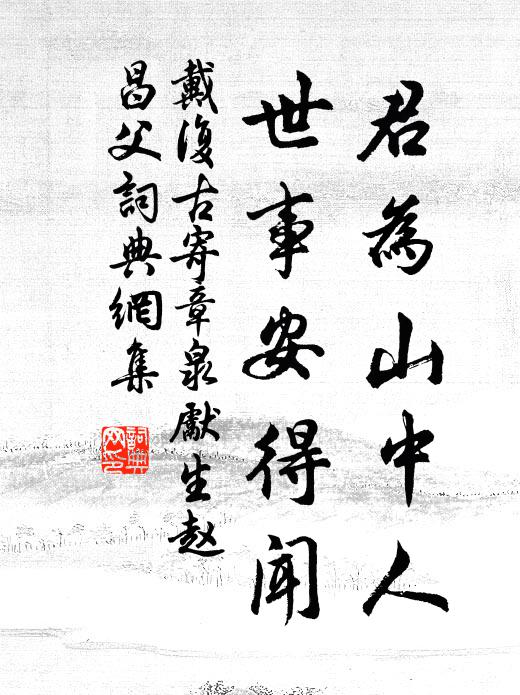 君為山中人
世事安得聞
戴復古寄章泉獻生赵
昌父詞典網集
詞典
网印